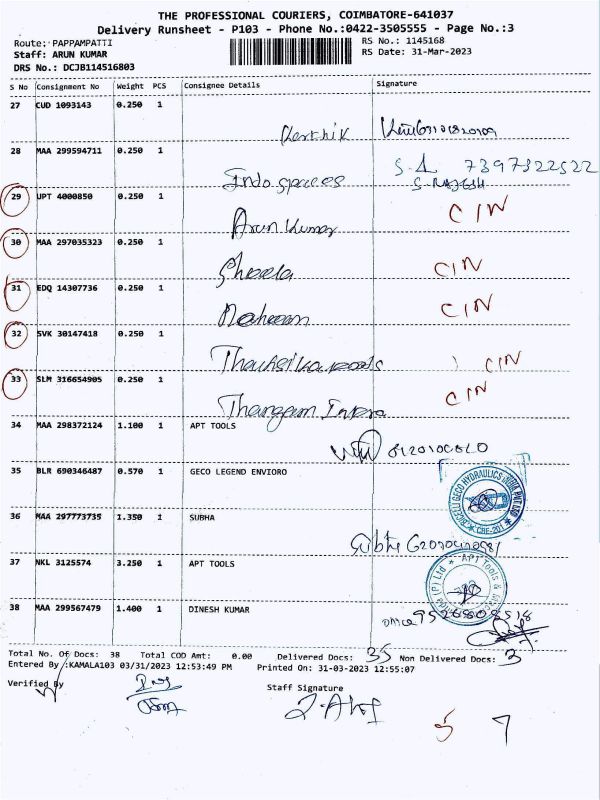 THE PROFESSIONAL COURIERS, COIMBATORE-641037
Delivery Runsheet - P103 - Phone No.:0422-3505555 - Page No.:3
Route: PAPPAMPATTI
RS No.: 1145168
Staff: ARUN KUMAR
RS Date: 31-Mar-2023
DRS No.: DCJB114516803
S No Consignment No Weight PCS Consignee Details Signature
27 CUD 1093143 0.250 1
Karthik
28 MAA 299594711 0.250 1
Indo spaces S.A 7397322522
S. RAJESH
29 UPT 4000850 0.250 1
Arun Kumar C/N
30 MAA 297035323 0.250 1
Sheela C/N
31 EDQ 14307736 0.250 1
C/N
32 SVK 30147418 0.250 1
C/N
33 SLM 316654905 0.250 1
Thangam C/N
34 MAA 298372124 1.100 1 APT TOOLS
35 BLR 690346487 0.570 1 GECO LEGEND ENVIORO
36 MAA 297773735 1.350 1 SUBHA
37 NKL 3125574 3.250 1 APT TOOLS
APT Tools &
38 MAA 299567479 1.400 1 DINESH KUMAR
Total No. Of Docs: 38 Total COD Amt: 0.00 Delivered Docs: 35 Non Delivered Docs: 3
Entered By :KAMALA103 03/31/2023 12:53:49 PM Printed On: 31-03-2023 12:55:07
Verified By
Staff Signature
5 7